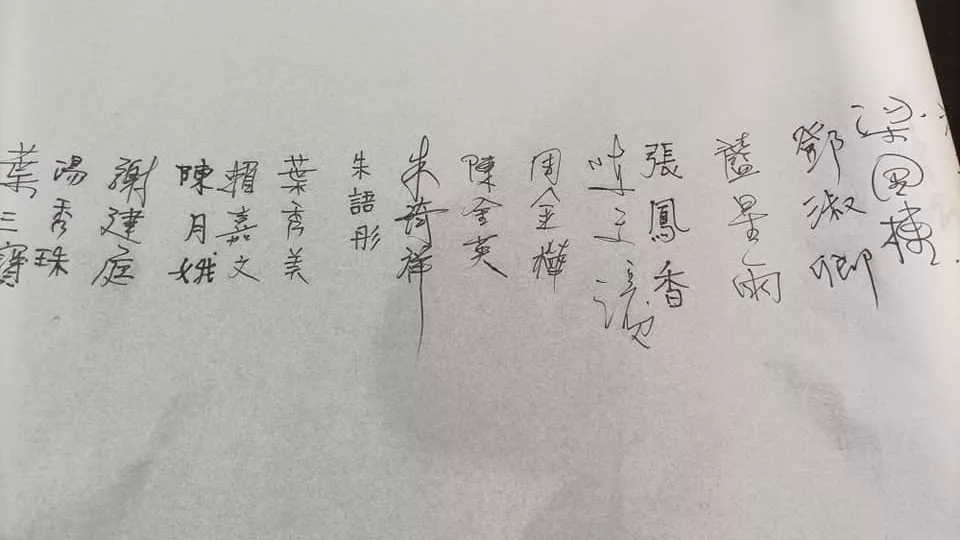 梁國棟
鄧淑卿
藍星雨
張鳳香
周金樺
陳金英
朱琦祥
朱語彤
葉秀美
賴嘉文
陳月娥
謝建庭
湯秀珠
葉三寶